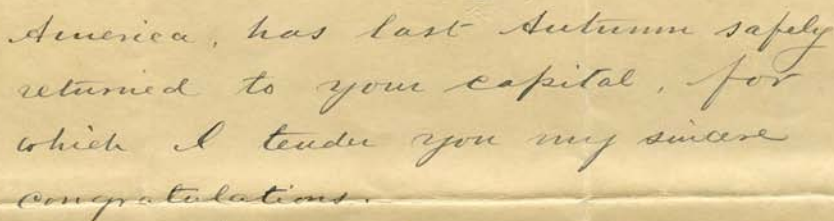 America, has last Autumn safely
returned to your capital, for
which I tender you my sincere
congratulations.